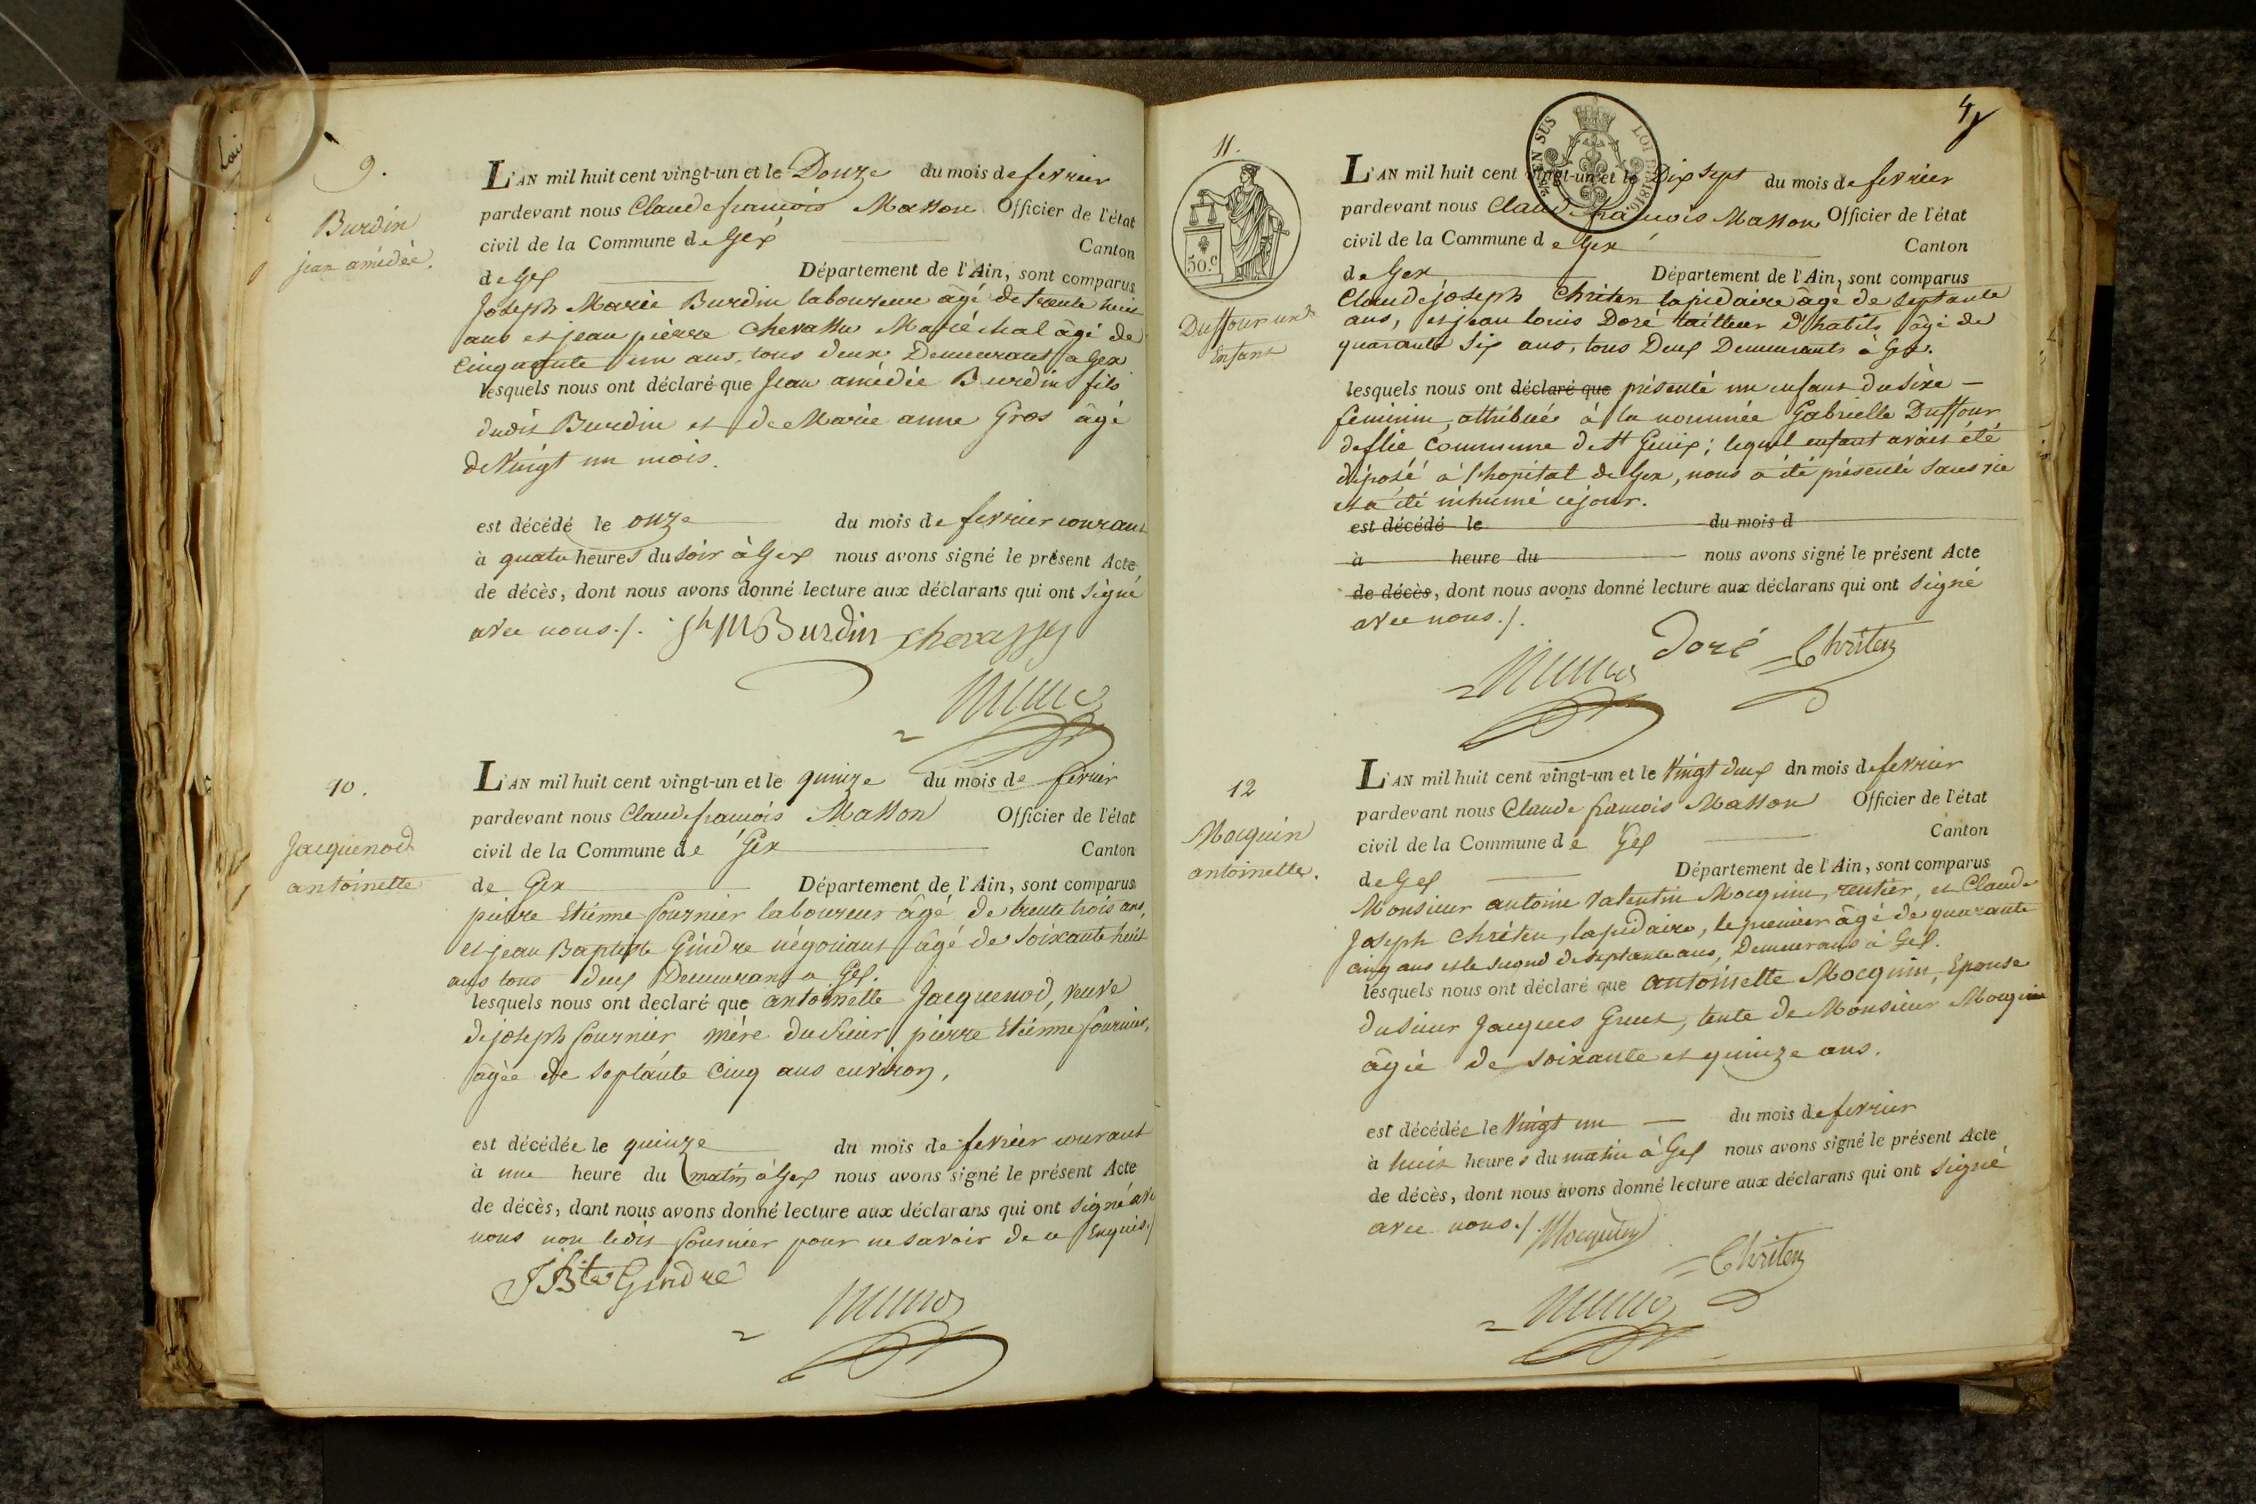 9.
Burdin
jean amédée.
L'AN mil huit cent vingt-un et le Douze du mois de fevrier
pardevant nous Claude francois Masson Officier de l'état
civil de la Commune de Gex Canton
de Gex Département de l'Ain, sont comparus
Joseph Marie Burdin laboureur âgé de trente huit
ans et jean pierre Chevassu Maréchal âgé de
Cinquante un ans, tous deux Demeurant a Gex
lesquels nous ont déclaré que Jean amédée Burdin fils
dudit Burdin et de Marie anne Gros âgé
de Vingt un mois.
est décédé le onze du mois de fevrier courant
à quatre heures du soir à Gex nous avons signé le présent Acte
de décès, dont nous avons donné lecture aux déclarans qui ont signé
avec nous ./. Jh M Burdin Chevassu
10.
Jacquenod
antoinette
L'AN mil huit cent vingt-un et le quinze du mois de fevrier
pardevant nous Claude francois Masson Officier de l'état
civil de la Commune de Gex Canton
de Gex Département de l'Ain, sont comparus
pierre Etienne fournier laboureur âgé de trente trois ans,
et jean Baptiste Gindre négociant âgé de soixante huit
ans tous deux Demeurant a Gex.
lesquels nous ont declaré que antoinette Jacquenod, veuve
de joseph fournier mère du sieur pierre Etienne fournier,
âgée de septante cinq ans environ,
est décédée le quinze du mois de fevrier courant
à une heure du matin à Gex nous avons signé le présent Acte
de décès, dont nous avons donné lecture aux déclarans qui ont signé avec
nous non ledit fournier pour ne savoir de ce Enquis ./.
J Bte Gindre
4
11.
50.c
LOI DE 1816.
EN SUS
Duffour un
Enfant
L'AN mil huit cent vingt-un et le Dix sept du mois de fevrier
pardevant nous Claude francois Masson Officier de l'état
civil de la Commune de Gex Canton
de Gex Département de l'Ain, sont comparus
Claude joseph Chriten lapidaire âgé de septante
ans, et jean louis Doré tailleur d'habits âgé de
quarante six ans, tous Deux Demeurants à Gex.
lesquels nous ont déclaré que présenté un enfant du sexe
feminin, attribuée à la nommée Gabrielle Duffour
de flie commune de st Genix; lequel enfant avait été
déposé à l'hopital de Gex, nous a été présenté sans vie
et a été inhumé ce jour.
est décédé le du mois d
à heure du nous avons signé le présent Acte
de décès, dont nous avons donné lecture aux déclarans qui ont signé
avec nous ./.
Doré Chriten
12
Mocquin
antoinette.
L'AN mil huit cent vingt-un et le Vingt deux dn mois de fevrier
pardevant nous Claude francois Masson Officier de l'état
civil de la Commune de Gex Canton
de Gex Département de l'Ain, sont comparus
Monsieur antoine Valentin Mocquin, rentier, et Claude
Joseph Chriten, lapidaire, le premier âgé de quarante
cinq ans et le second de septante ans, Demeurans à Gex.
lesquels nous ont déclaré que antoinette Mocquin, Epouse
du sieur Jacques Gruet, tente de Monsieur Mocquin
âgée de soixante et quinze ans.
est décédée le Vingt un du mois de fevrier
à huit heures du matin à Gex nous avons signé le présent Acte
de décès, dont nous avons donné lecture aux déclarans qui ont signé
avec nous ./. Mocquin
Chriten